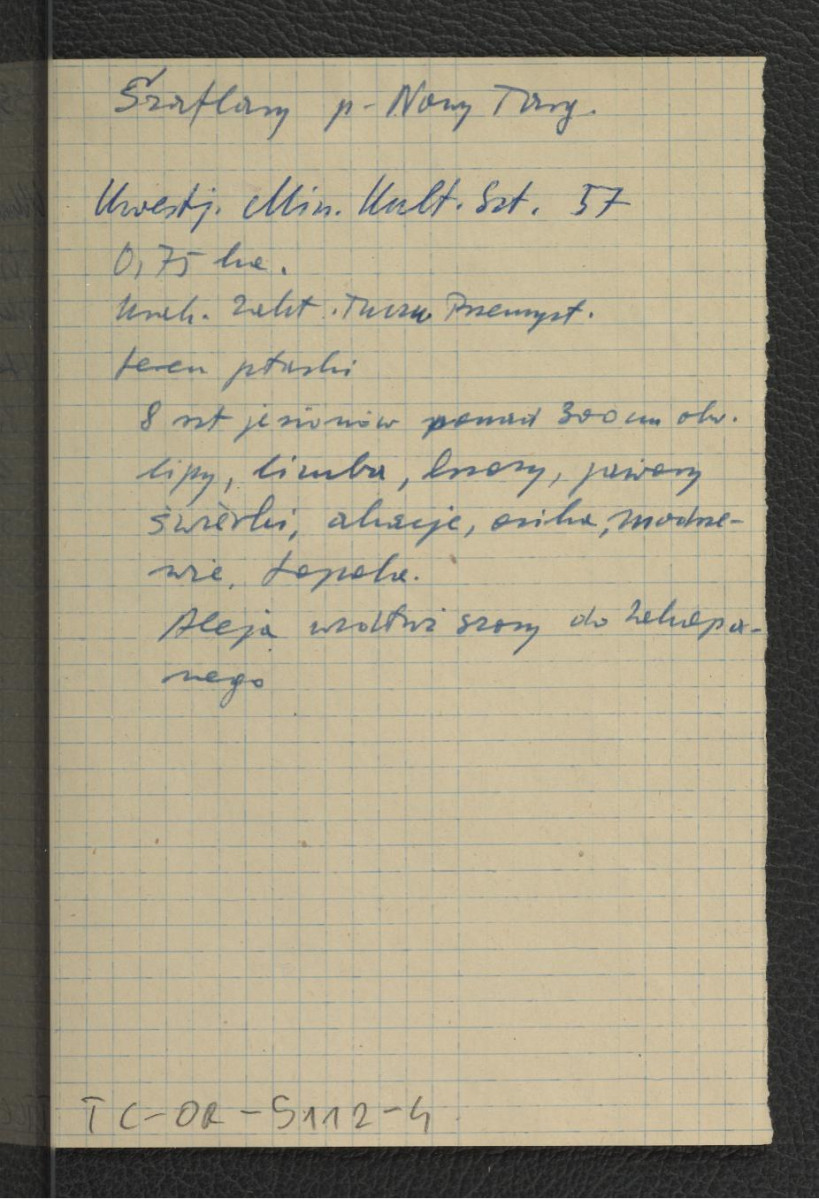 Szaflary p. Nowy Targ.
Kwestj. Min. Kult. Szt. 57
0,75 ha.
Zakł. Tuczu Przemysł.
teren płaski
8 szt jesionów ponad 300 cm obw.
lipy, limba, brzozy, jawory
świerki, akacje, osika, modrze-
wie, topola.
Aleja wzdłuż szosy do Zakopa-
nego
TC-OR-S112-4